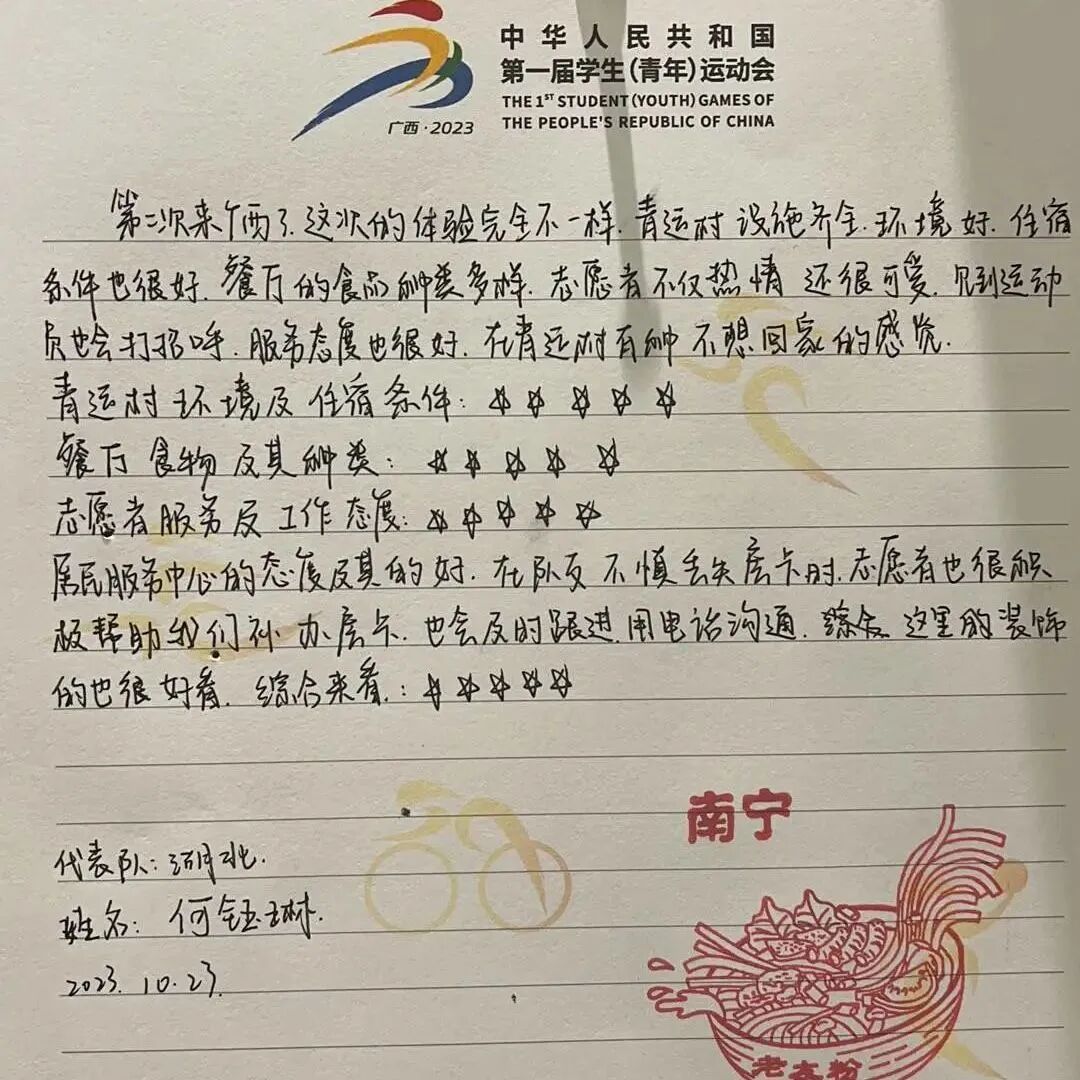 中华人民共和国
第一届学生(青年)运动会
THE 1ST STUDENT (YOUTH) GAMES OF
THE PEOPLE'S REPUBLIC OF CHINA
广西·2023
第二次来广西了.这次的体验完全不一样.青运村设施齐全.环境好.住宿
条件也很好.餐厅的食品种类多样.志愿者不仅热情 还很可爱.见到运动
员也会打招呼.服务态度也很好.在青运村有种不想回家的感觉.
青运村环境及住宿条件:☆☆☆☆☆
餐厅食物及其种类:☆☆☆☆☆
志愿者服务及工作态度:☆☆☆☆☆
居民服务中心的态度及其的好.在队友不慎丢失房卡时.志愿者也很积
极帮助我们补办房卡.也会及时跟进.用电话沟通.综合 这里的装饰
的也很好看.综合来看.:☆☆☆☆☆
南宁
代表队:河北.
姓名:何钰琳.
2023.10.23.
老友粉